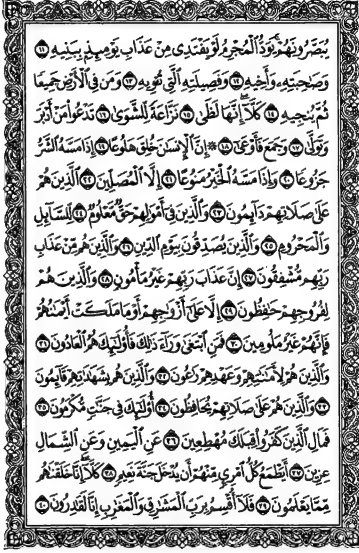 يُبَصَّرُونَهُمْ يَوَدُّ الْمُجْرِمُ لَوْ يَفْتَدِي مِنْ عَذَابِ يَوْمِئِذٍ بِبَنِيهِ ١١
وَصَاحِبَتِهِ وَأَخِيهِ ١٢ وَفَصِيلَتِهِ الَّتِي تُؤْوِيهِ ١٣ وَمَنْ فِي الْأَرْضِ جَمِيعًا
ثُمَّ يُنْجِيهِ ١٤ كَلَّا إِنَّهَا لَظَى ١٥ نَزَّاعَةً لِلشَّوَى ١٦ تَدْعُوا مَنْ أَدْبَرَ
وَتَوَلَّى ١٧ وَجَمَعَ فَأَوْعَى ١٨ ۞ إِنَّ الْإِنْسَانَ خُلِقَ هَلُوعًا ١٩ إِذَا مَسَّهُ الشَّرُّ
جَزُوعًا ٢٠ وَإِذَا مَسَّهُ الْخَيْرُ مَنُوعًا ٢١ إِلَّا الْمُصَلِّينَ ٢٢ الَّذِينَ هُمْ
عَلَى صَلَاتِهِمْ دَائِمُونَ ٢٣ وَالَّذِينَ فِي أَمْوَالِهِمْ حَقٌّ مَعْلُومٌ ٢٤ لِلسَّائِلِ
وَالْمَحْرُومِ ٢٥ وَالَّذِينَ يُصَدِّقُونَ بِيَوْمِ الدِّينِ ٢٦ وَالَّذِينَ هُمْ مِنْ عَذَابِ
رَبِّهِمْ مُشْفِقُونَ ٢٧ إِنَّ عَذَابَ رَبِّهِمْ غَيْرُ مَأْمُونٍ ٢٨ وَالَّذِينَ هُمْ
لِفُرُوجِهِمْ حَافِظُونَ ٢٩ إِلَّا عَلَى أَزْوَاجِهِمْ أَوْ مَا مَلَكَتْ أَيْمَانُهُمْ
فَإِنَّهُمْ غَيْرُ مَلُومِينَ ٣٠ فَمَنِ ابْتَغَى وَرَاءَ ذَلِكَ فَأُولَئِكَ هُمُ الْعَادُونَ ٣١
وَالَّذِينَ هُمْ لِأَمَانَاتِهِمْ وَعَهْدِهِمْ رَاعُونَ ٣٢ وَالَّذِينَ هُمْ بِشَهَادَاتِهِمْ قَائِمُونَ
٣٣ وَالَّذِينَ هُمْ عَلَى صَلَاتِهِمْ يُحَافِظُونَ ٣٤ أُولَئِكَ فِي جَنَّاتٍ مُكْرَمُونَ ٣٥
فَمَالِ الَّذِينَ كَفَرُوا قِبَلَكَ مُهْطِعِينَ ٣٦ عَنِ الْيَمِينِ وَعَنِ الشِّمَالِ
عِزِينَ ٣٧ أَيَطْمَعُ كُلُّ امْرِئٍ مِنْهُمْ أَنْ يُدْخَلَ جَنَّةَ نَعِيمٍ ٣٨ كَلَّا إِنَّا خَلَقْنَاهُمْ
مِمَّا يَعْلَمُونَ ٣٩ فَلَا أُقْسِمُ بِرَبِّ الْمَشَارِقِ وَالْمَغَارِبِ إِنَّا لَقَادِرُونَ ٤٠